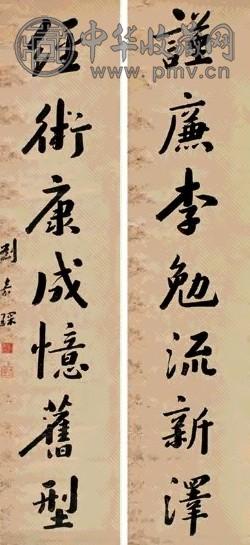 中华收藏网
www.pmv.cn
謹廉李勉流新澤
經術康成憶舊型
劉嘉琛